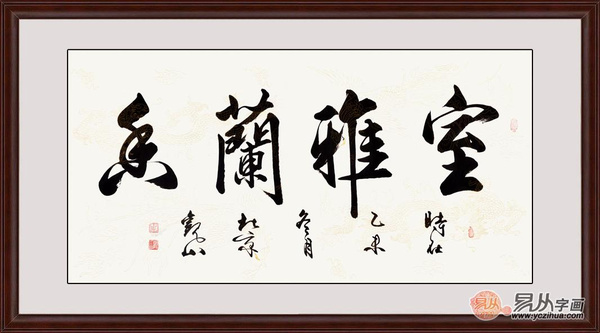 室雅蘭香
時在 乙未 冬月 京 觀山
易从字画
www.yczihua.com